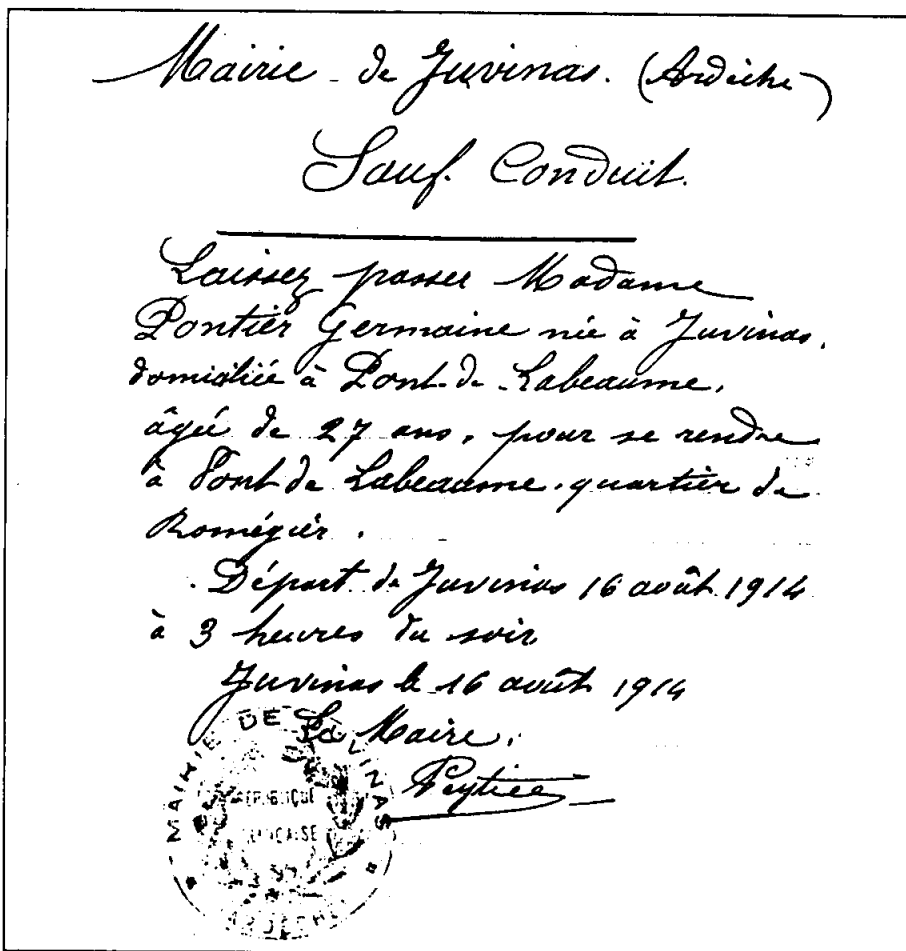 Mairie de Juvinas. (Ardèche)
Sauf. Conduit.
Laissez passer Madame
Pontier Germaine née à Juvinas,
domiciliée à Pont-de-Labeaume,
âgée de 27 ans, pour se rendre
à Pont de Labeaume, quartier de
Romégier.
Départ de Juvinas 16 août 1914
à 3 heures du soir
Juvinas le 16 août 1914
Le Maire,
MAIRIE DE JUVINAS
RÉPUBLIQUE
FRANÇAISE
ARDÈCHE